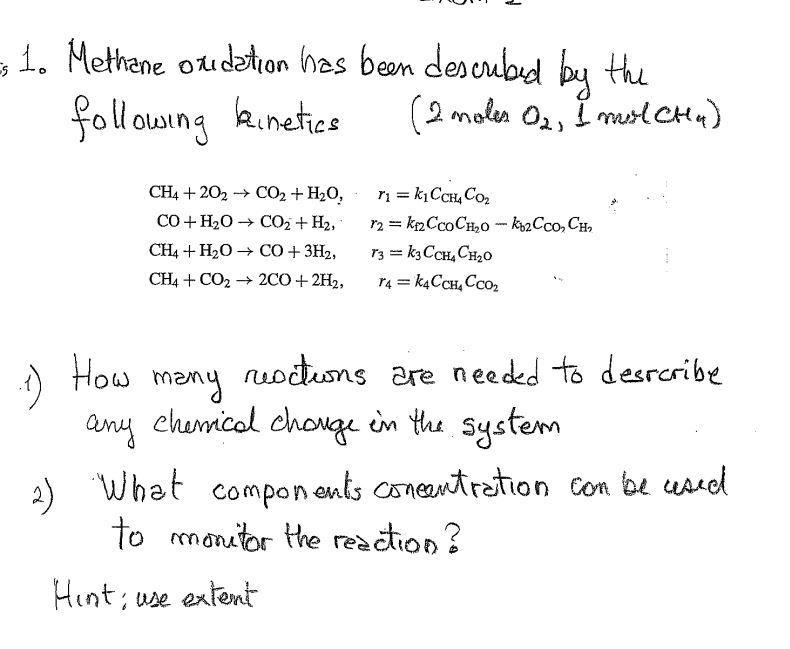 1. Methane oxidation has been described by the
following kinetics (2 moles O₂, 1 mol CH₄)
CH₄ + 2O₂ → CO₂ + H₂O, r₁ = k₁C_CH₄ C_O₂
CO + H₂O → CO₂ + H₂, r₂ = k_f2 C_CO C_H₂O − k_b2 C_CO₂ C_H₂
CH₄ + H₂O → CO + 3H₂, r₃ = k₃ C_CH₄ C_H₂O
CH₄ + CO₂ → 2CO + 2H₂, r₄ = k₄ C_CH₄ C_CO₂
1) How many reactions are needed to desrcribe
any chemical change in the system
2) What components concentration can be used
to monitor the reaction?
Hint; use extent